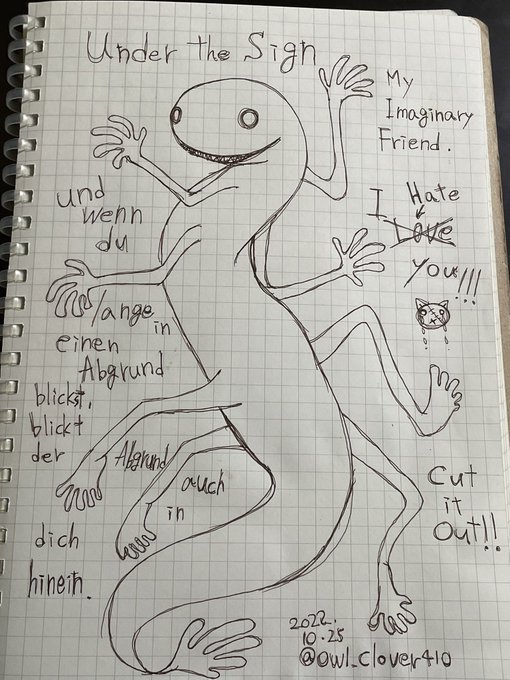 Under the Sign
My
Imaginary
Friend.
I Hate
Love
You!!!
und
wenn
du
lange in
einen
Abgrund
blickst,
blickt
der
Abgrund
auch
in
dich
hinein.
Cut
it
Out!!
2022.
10.25
@owl_clover410